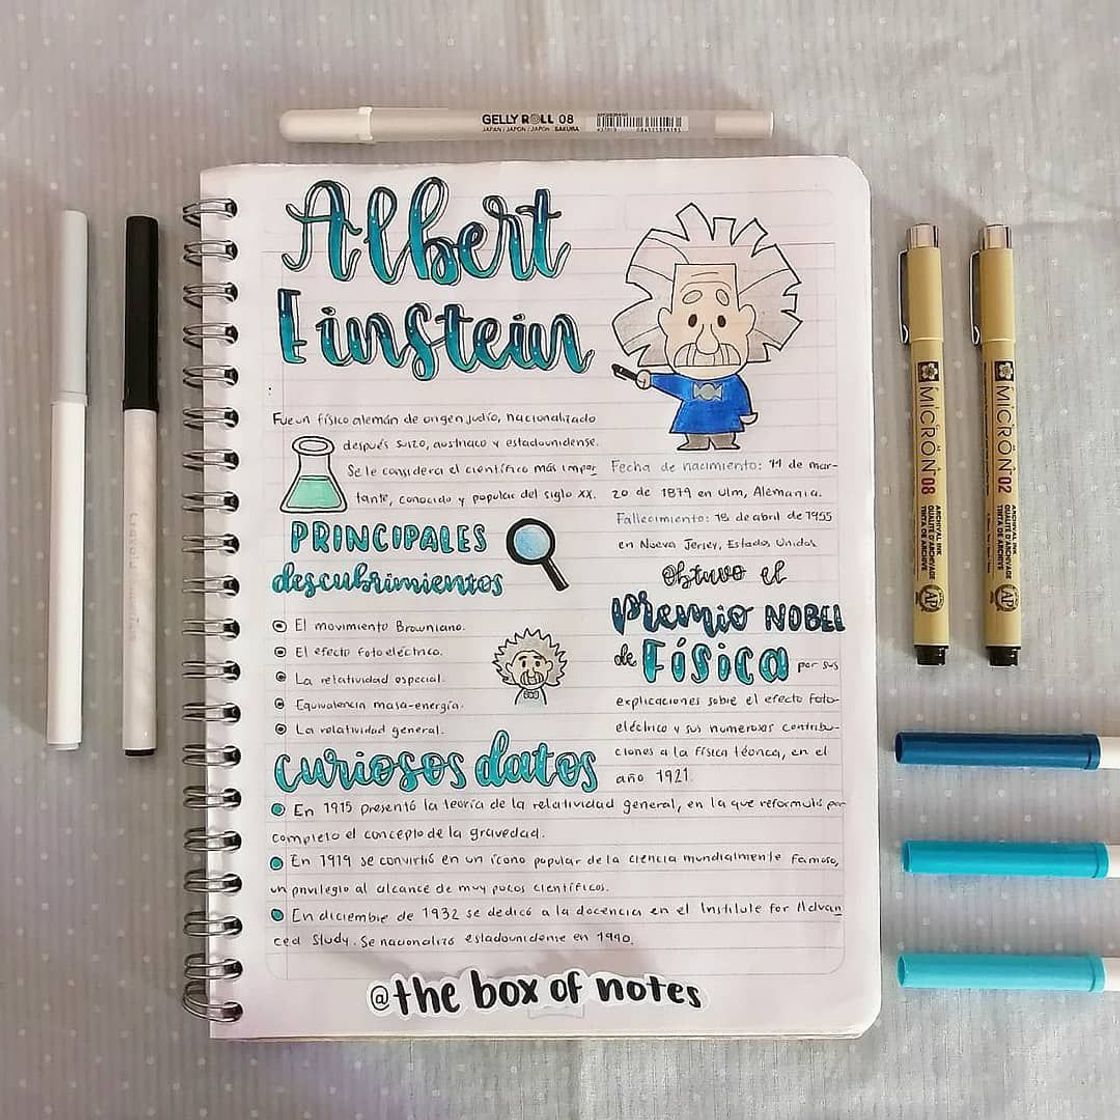 GELLY ROLL 08
JAPAN / JAPON / JAPÓN SAKURA
Albert
Einstein
Fue un físico alemán de origen judío, nacionalizado
después suizo, austriaco y estadounidense.
Se le considera el científico más impor
tante, conocido y popular del siglo XX.
PRINCIPALES
descubrimientos
El movimiento Browniano.
El efecto fotoeléctrico.
La relatividad especial.
Equivalencia masa-energía.
La relatividad general.
Fecha de nacimiento: 14 de mar-
zo de 1879 en Ulm, Alemania.
Fallecimiento: 18 de abril de 1955
en Nueva Jersey, Estados Unidos
Obtuvo el
Premio NOBEL
de Física por sus
explicaciones sobre el efecto foto-
eléctrico y sus numerosas contribu-
ciones a la física teórica, en el
año 1921.
curiosos datos
En 1915 presentó la teoría de la relatividad general, en la que reformuló por
completo el concepto de la gravedad.
En 1919 se convirtió en un ícono popular de la ciencia mundialmente famoso,
un privilegio al alcance de muy pocos científicos.
En diciembre de 1932 se dedicó a la docencia en el Institute for Advan
ced Study. Se nacionalizó estadounidense en 1940.
@the box of notes
MICRON 08
ARCHIVAL INK
QUALITÉ D'ARCHIVAGE
TINTA DE ARCHIVE
AP
MICRON 02
ARCHIVAL INK
QUALITÉ D'ARCHIVAGE
TINTA DE ARCHIVE
AP